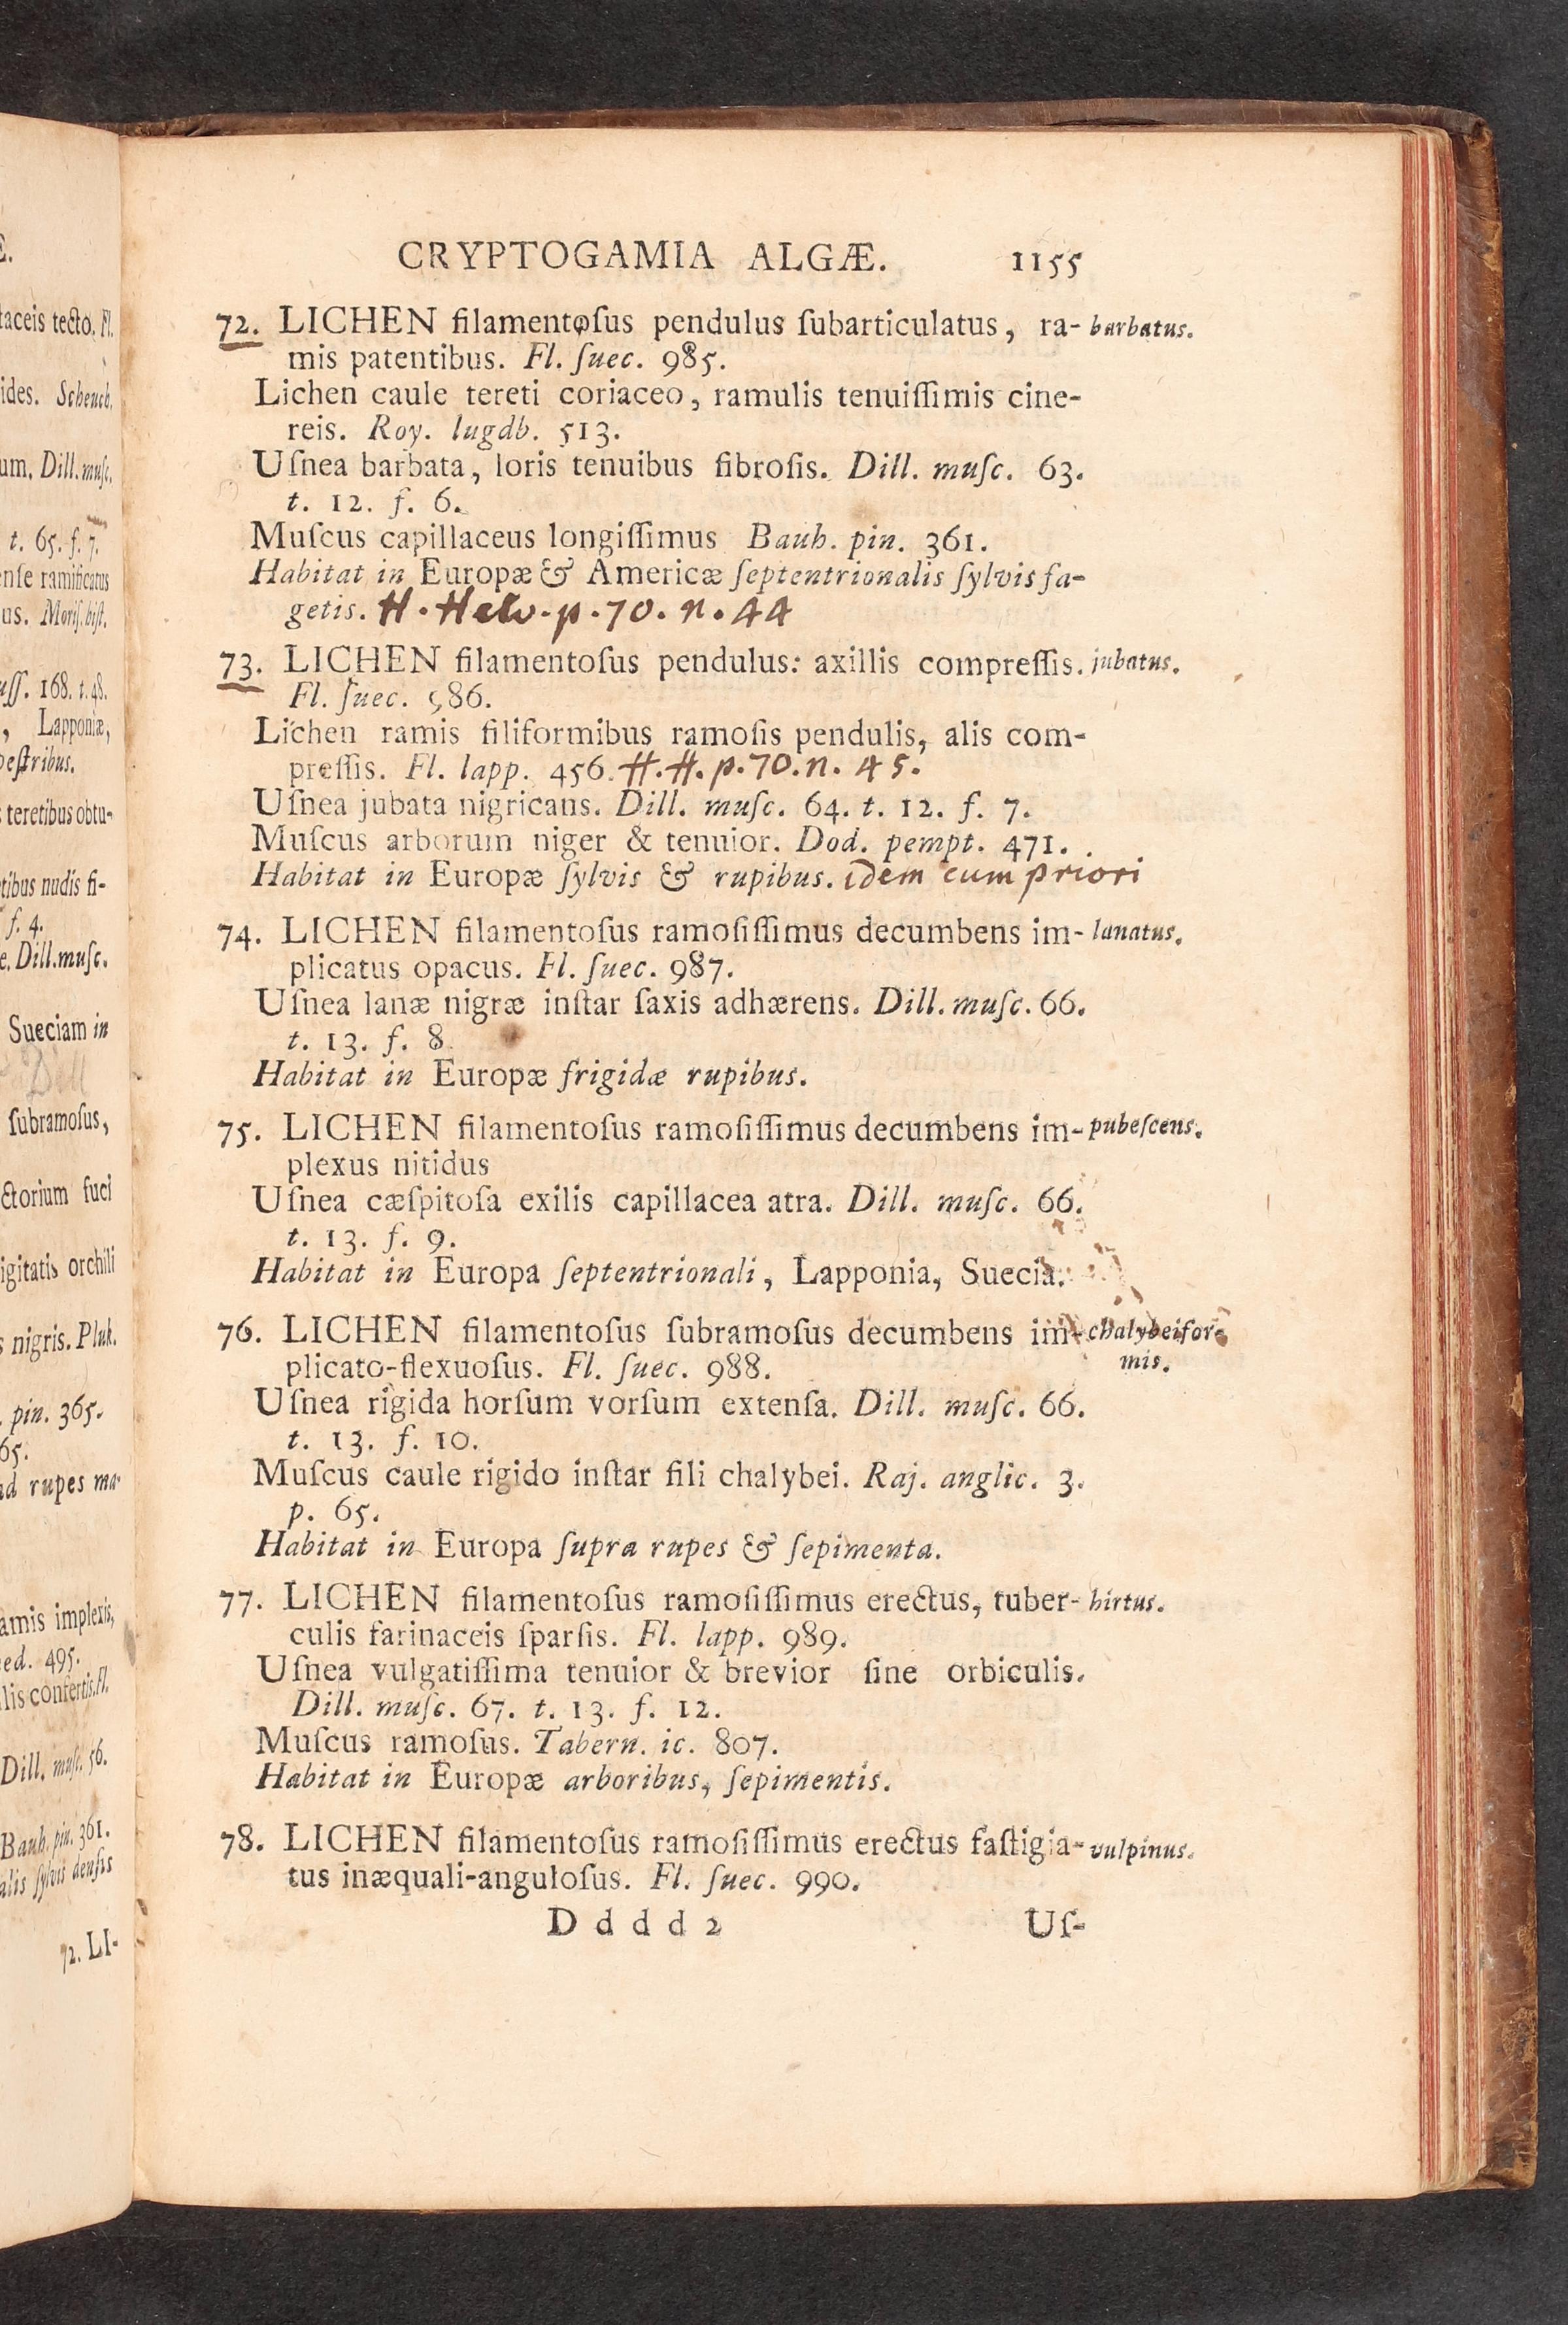 CRYPTOGAMIA ALGÆ. 1155
72. LICHEN filamentoſus pendulus ſubarticulatus, ra- barbatus.
mis patentibus. Fl. ſuec. 985.
Lichen caule tereti coriaceo, ramulis tenuiſſimis cine-
reis. Roy. lugdb. 513.
Uſnea barbata, loris tenuibus fibroſis. Dill. muſc. 63.
t. 12. f. 6.
Muſcus capillaceus longiſſimus Bauh. pin. 361.
Habitat in Europæ & Americæ ſeptentrionalis ſylvis fa-
getis. H. Helv. p. 70. n. 44
73. LICHEN filamentoſus pendulus: axillis compreſſis. jubatus.
Fl. ſuec. 986.
Lichen ramis filiformibus ramoſis pendulis, alis com-
preſſis. Fl. lapp. 456. H. H. p. 70. n. 45.
Uſnea jubata nigricans. Dill. muſc. 64. t. 12. f. 7.
Muſcus arborum niger & tenuior. Dod. pempt. 471.
Habitat in Europæ ſylvis & rupibus. idem cum priori
74. LICHEN filamentoſus ramoſiſſimus decumbens im- lanatus.
plicatus opacus. Fl. ſuec. 987.
Uſnea lanæ nigræ inſtar ſaxis adhærens. Dill. muſc. 66.
t. 13. f. 8.
Habitat in Europæ frigidæ rupibus.
75. LICHEN filamentoſus ramoſiſſimus decumbens im- pubeſcens.
plexus nitidus
Uſnea cæſpitoſa exilis capillacea atra. Dill. muſc. 66.
t. 13. f. 9.
Habitat in Europa ſeptentrionali, Lapponia, Suecia.
76. LICHEN filamentoſus ſubramoſus decumbens im- chalybeifor-
plicato-flexuoſus. Fl. ſuec. 988. mis.
Uſnea rigida horſum vorſum extenſa. Dill. muſc. 66.
t. 13. f. 10.
Muſcus caule rigido inſtar fili chalybei. Raj. anglic. 3.
p. 65.
Habitat in Europa ſupra rupes & ſepimenta.
77. LICHEN filamentoſus ramoſiſſimus erectus, tuber- hirtus.
culis farinaceis ſparſis. Fl. lapp. 989.
Uſnea vulgatiſſima tenuior & brevior ſine orbiculis.
Dill. muſc. 67. t. 13. f. 12.
Muſcus ramoſus. Tabern. ic. 807.
Habitat in Europæ arboribus, ſepimentis.
78. LICHEN filamentoſus ramoſiſſimus erectus faſtigia- vulpinus.
tus inæquali-anguloſus. Fl. ſuec. 990.
D d d d 2 Uſ-